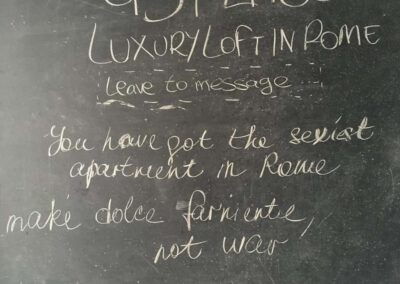 LUXURY LOFT IN ROME
Leave to message
You have got the sexiest
apartment in Rome
make dolce farniente,
not war